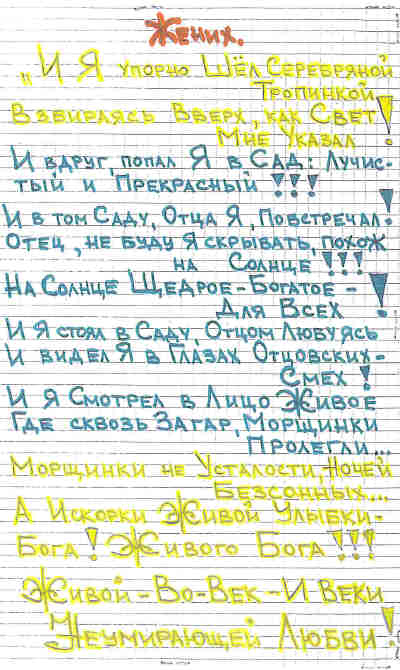 Жених.
„И Я упорно Шёл Серебряной
Тропинкой
Взбираясь Вверх, как Свет
Мне Указал!
И вдруг, попал Я в Сад: Лучис-
тый и Прекрасный!!!
И в том Саду, Отца Я, Повстречал!
Отец, не буду Я скрывать, похож
на Солнце!!!
На Солнце Щедрое-Богатое-
Для Всех!
И Я стоял в Саду, Отцом Любуясь
И видел Я в Глазах Отцовских-
Смех!
И Я Смотрел в Лицо Живое
Где сквозь Загар, Морщинки
Пролегли...
Морщинки не Усталости, Ночей
Безсонных...
А Искорки Живой Улыбки-
Бога! Живого Бога!!!
Живой-Во-Век-И Веки
Неумирающей Любви!